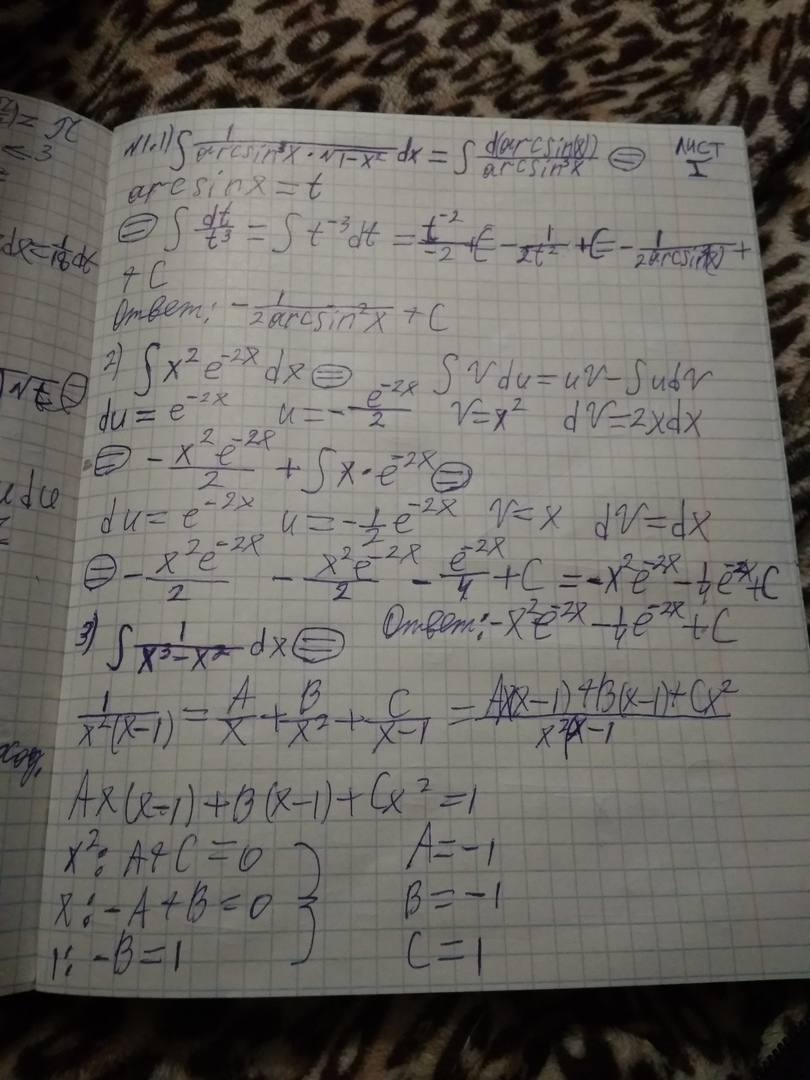 )= π
< 3
dx=1/18 dt
√t ⊜
u du
=
ход,
N1.1) ∫ 1/(arcsin³x · √1-x²) dx = ∫ d(arcsin(x))/arcsin³x ⊜ ЛИСТ I
arcsinx = t
⊜ ∫ dt/t³ = ∫ t⁻³dt = t⁻²/-2 + C - 1/2t² + C = - 1/2arcsin²(x) +
+ C
Ответ: - 1/2arcsin²x + C
2) ∫ x²e⁻²ˣ dx ⊜ ∫ V du = uV - ∫ u dV
du = e⁻²ˣ u = - e⁻²ˣ/2 V = x² dV = 2xdx
⊜ - x²e⁻²ˣ/2 + ∫ x · e⁻²ˣ ⊜
du = e⁻²ˣ u = - 1/2 e⁻²ˣ V = x dV = dx
⊜ - x²e⁻²ˣ/2 - x²e⁻²ˣ/2 - e⁻²ˣ/4 + C = -x²e⁻²ˣ - 1/4 e⁻²ˣ + C
Ответ: -x²e⁻²ˣ - 1/4 e⁻²ˣ + C
3) ∫ 1/(x³-x²) dx ⊜
1/x²(x-1) = A/x + B/x² + C/x-1 = Ax(x-1)+B(x-1)+Cx² / x²(x-1
Ax(x-1)+B(x-1)+Cx² = 1
x²: A+C=0 A=-1
x: -A+B=0 B=-1
1: -B=1 C=1